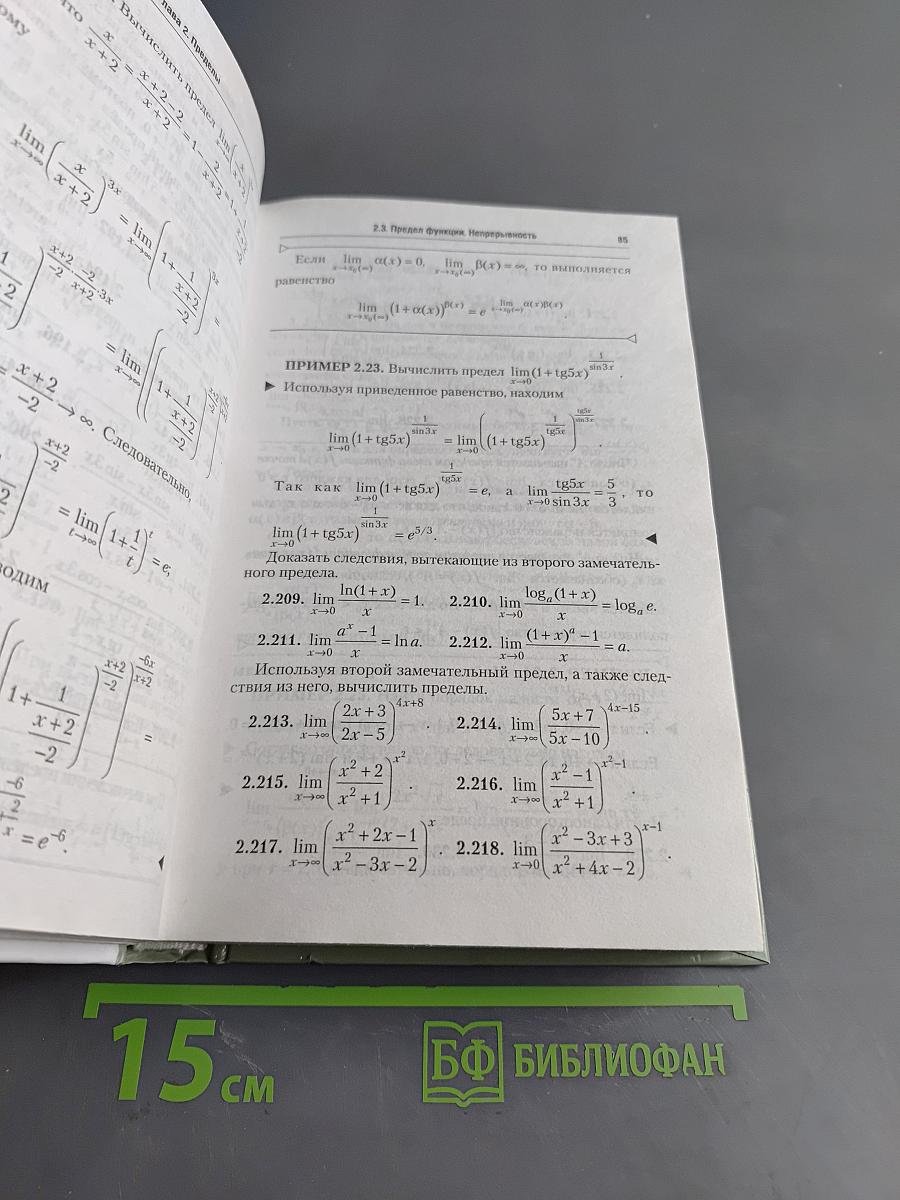 лава 2. Пределы
Вычислить предел
x/(x+2) = (x+2−2)/(x+2) = 1 − 2/(x+2) = 1 +
lim x→∞ (x/(x+2))^{3x} = lim x→∞ (1 + 1/((x+2)/−2))^{3x} =
= lim x→∞
(x+2)/−2 → ∞. Следовательно,
= lim t→∞ (1 + 1/t)^t = e,
водим
= e^{−6}.
2.3. Предел функции. Непрерывность 85
Если lim x→x₀(∞) α(x) = 0, lim x→x₀(∞) β(x) = ∞, то выполняется
равенство
lim x→x₀(∞) (1+α(x))^{β(x)} = e^{lim x→x₀(∞) α(x)β(x)}.
ПРИМЕР 2.23. Вычислить предел lim x→0 (1+tg5x)^{1/sin3x}.
► Используя приведенное равенство, находим
lim x→0 (1+tg5x)^{1/sin3x} = lim x→0 ((1+tg5x)^{1/tg5x})^{tg5x/sin3x}.
Так как lim x→0 (1+tg5x)^{1/tg5x} = e, а lim x→0 tg5x/sin3x = 5/3, то
lim x→0 (1+tg5x)^{1/sin3x} = e^{5/3}. ◄
Доказать следствия, вытекающие из второго замечатель-
ного предела.
2.209. lim x→0 ln(1+x)/x = 1. 2.210. lim x→0 logₐ(1+x)/x = logₐ e.
2.211. lim x→0 (a^x − 1)/x = ln a. 2.212. lim x→0 ((1+x)^a − 1)/x = a.
Используя второй замечательный предел, а также след-
ствия из него, вычислить пределы.
2.213. lim x→∞ ((2x+3)/(2x−5))^{4x+8}. 2.214. lim x→∞ ((5x+7)/(5x−10))^{4x−15}.
2.215. lim x→∞ ((x²+2)/(x²+1))^{x²}. 2.216. lim x→∞ ((x²−1)/(x²+1))^{x²−1}.
2.217. lim x→∞ ((x²+2x−1)/(x²−3x−2))^x. 2.218. lim x→0 ((x²−3x+3)/(x²+4x−2))^{x−1}.
15 см
БФ БИБЛИОФАН